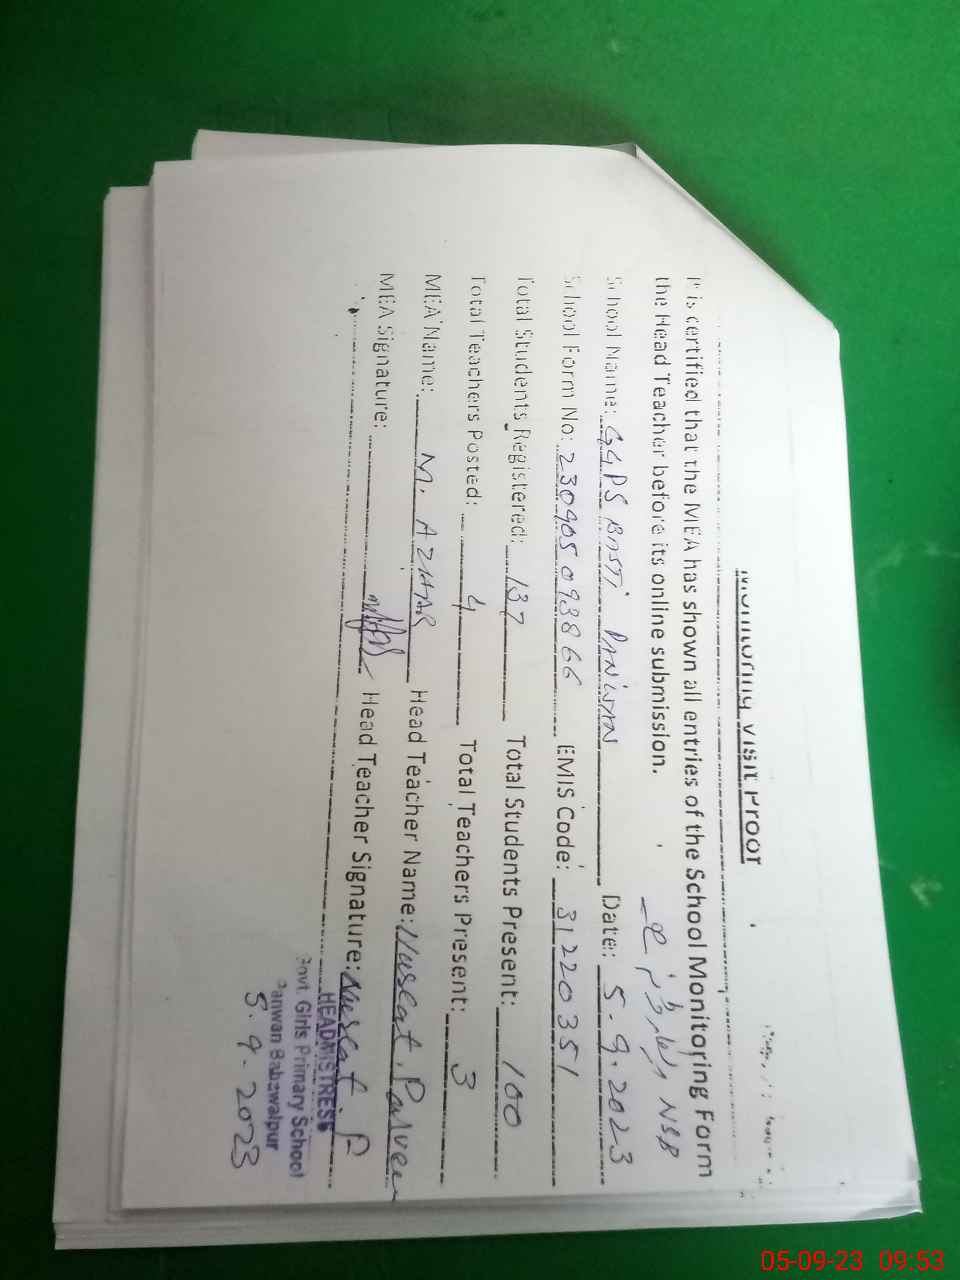 Monitoring Visit Proof
It is certified that the MEA has shown all entries of the School Monitoring Form
the Head Teacher before its online submission.
NSB
School Name: GGPS BASTI PANWAN Date: 5-9.2023
School Form No: 230905093866 EMIS Code: 31220351
Total Students Registered: 137 Total Students Present: 100
Total Teachers Posted: 4 Total Teachers Present: 3
MEA Name: M. AZHAR Head Teacher Name: Nusrat Parveen
MEA Signature: Head Teacher Signature: Nusrat P
HEADMISTRESS
Govt. Girls Primary School
Panwan Bahawalpur
5.9.2023
05-09-23 09:53